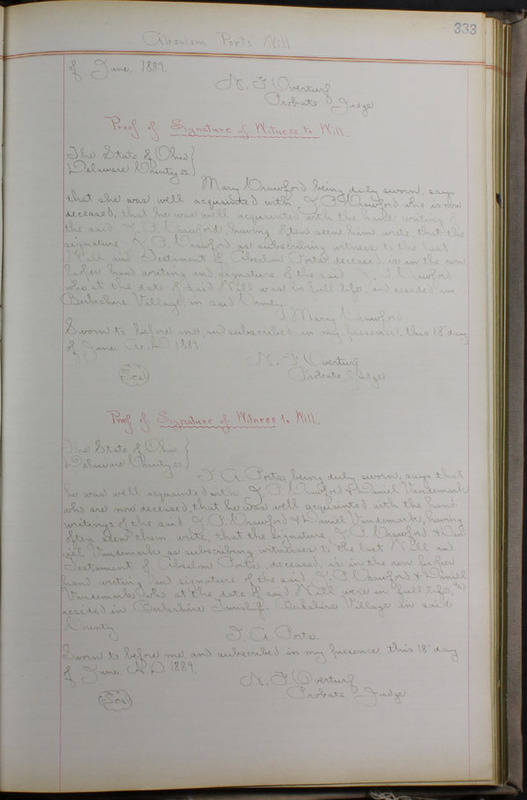 333
Absalom Porter Will
of June, 1889.
N. F. Overturf
Probate Judge
Proof of Signature of Witness to Will.
The State of Ohio }
Delaware County ss }
Mary Crawford being duly sworn, says
that she was well acquainted with T. P. Crawford who is now
deceased, that he was well acquainted with the hand writing of
the said T. P. Crawford, having often seen him write that the
signature T. P. Crawford as subscribing witness to the last
Will and Testament of Absalom Porter deceased, is in the own
proper hand writing and signature of the said T. P. Crawford
who at the date of said Will was in full life, and resided in
Berkshire Village, in said County.
Mary Crawford
Sworn to before me, and subscribed in my presence, this 18" day
of June, A.D. 1889
N. F. Overturf
Probate Judge
Seal
Proof of Signature of Witness to Will.
The State of Ohio }
Delaware County ss }
T. A. Porter being duly sworn, says that
he was well acquainted with T. P. Crawford & Daniel Vandemark
who are now deceased that he was well acquainted with the hand
writing of the said T. P. Crawford & Daniel Vandemark, having
often seen them write, that the signature, T. P. Crawford & Dan
iel Vandemark as subscribing witnesses to the last Will and
Testament of Absalom Porter, deceased, is in the own proper
hand writing and signature of the said T. P. Crawford & Daniel
Vandemark who at the date of said Will were in full life, &
resided in Berkshire Township Berkshire Village in said
County.
T. A. Porter
Sworn to before me, and subscribed in my presence, this 18" day
of June, A.D 1889.
N. F. Overturf
Probate Judge
Seal